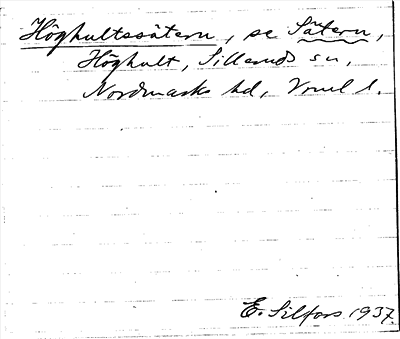 Höghultssätern, se Sätern,
Höghult, Silleruds sn,
Nordmarks hd, Vrml l.
E. Silfors 1937.